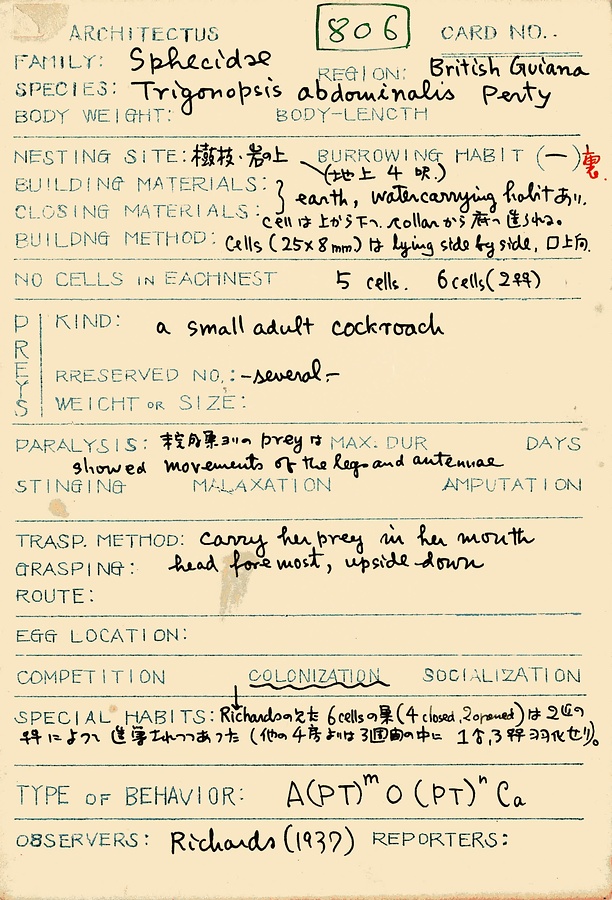 806
ARCHITECTUS CARD NO..
FAMILY: Sphecidae REGION: British Guiana
SPECIES: Trigonopsis abdominalis Perty
BODY WEIGHT: BODY-LENGTH
NESTING SITE: 樹枝・岩の上 BURROWING HABIT (一) 裏
(地上 4 呎.)
BUILDING MATERIALS: } earth, watercarrying habit あり.
CLOSING MATERIALS: cell は上から下へ. collar から底へ造られる。
BUILDNG METHOD: cells (25×8mm) は lying side by side, 口上向.
NO CELLS IN EACHNEST 5 cells. 6 cells (2♀♀)
PREYS
KIND: a small adult cockroach
RRESERVED NO.: -several.-
WEIGHT OR SIZE:
PARALYSIS: 未完成巣ヨリの prey は MAX. DUR DAYS
showed movements of the legs and antennae
STINGING MALAXATION AMPUTATION
TRASP. METHOD: carry her prey in her mouth
GRASPING: head foremost, upside down
ROUTE:
EGG LOCATION:
COMPETITION COLONIZATION SOCIALIZATION
SPECIAL HABITS: Richardsの見た 6cellsの巣(4 closed, 2 opened)は2匹の
♀♀によって造営されつつあった (他の4房よりは3週間の中に 1♂, 3♀♀羽化せり)。
TYPE OF BEHAVIOR: A(PT)m O (PT)n Ca
OBSERVERS: Richards (1937) REPORTERS: